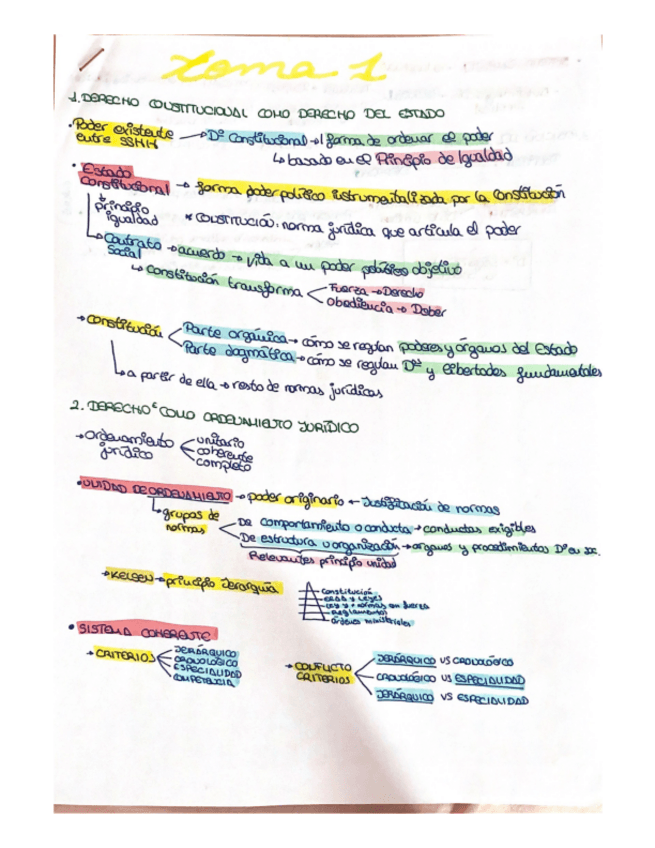 tema 1
1. DERECHO CONSTITUCIONAL COMO DERECHO DEL ESTADO
· Poder existente entre SSHH → Dº Constitucional → forma de ordenar el poder
↳ basado en el Principio de Igualdad
· Estado Constitucional → forma poder político instrumentalizada por la Constitución
↳ principio igualdad
* CONSTITUCIÓN: norma jurídica que articula el poder
↳ Contrato social → acuerdo → vida a un poder político objetivo
↳ Constitución transforma
Fuerza → Derecho
Obediencia → Deber
→ Constitución
Parte orgánica → cómo se regulan poderes y órganos del Estado
Parte dogmática → cómo se regulan Dºs y libertades fundamentales
↳ a partir de ella → resto de normas jurídicas
2. DERECHO COMO ORDENAMIENTO JURÍDICO
→ Ordenamiento jurídico
unitario
coherente
completo
· UNIDAD DE ORDENAMIENTO → poder originario ← Justificación de normas
↳ grupos de normas
De comportamiento o conducta → conductas exigibles
De estructura u organización → órganos y procedimientos Dº en
Relevantes principio unidad
→ KELSEN → principio Jerarquía
Constitución
y Leyes
Ley y normas con fuerza
Reglamentos
Órdenes ministeriales
· SISTEMA COHERENTE
→ CRITERIOS
JERÁRQUICO
CRONOLÓGICO
ESPECIALIDAD
COMPETENCIA
→ CONFLICTO CRITERIOS
JERÁRQUICO VS CRONOLÓGICO
CRONOLÓGICO VS ESPECIALIDAD
JERÁRQUICO VS ESPECIALIDAD